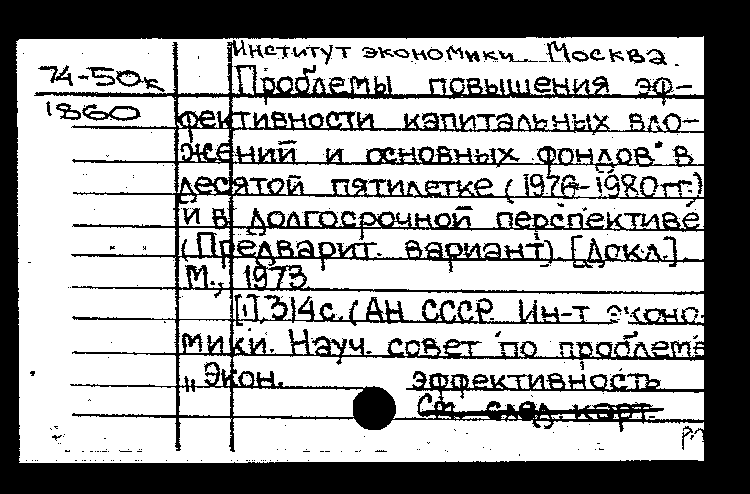 Институт экономики. Москва.
74-50к Проблемы повышения эф-
1860 фективности капитальных вло-
жений и основных фондов в
десятой пятилетке (1976-1980гг.)
и в долгосрочной перспективе
(Предварит. вариант). [Докл.].
М., 1973
[1], 314с. (АН СССР. Ин-т эконо-
мики. Науч. совет по проблеме
„Экон. эффективность
См. след. карт.